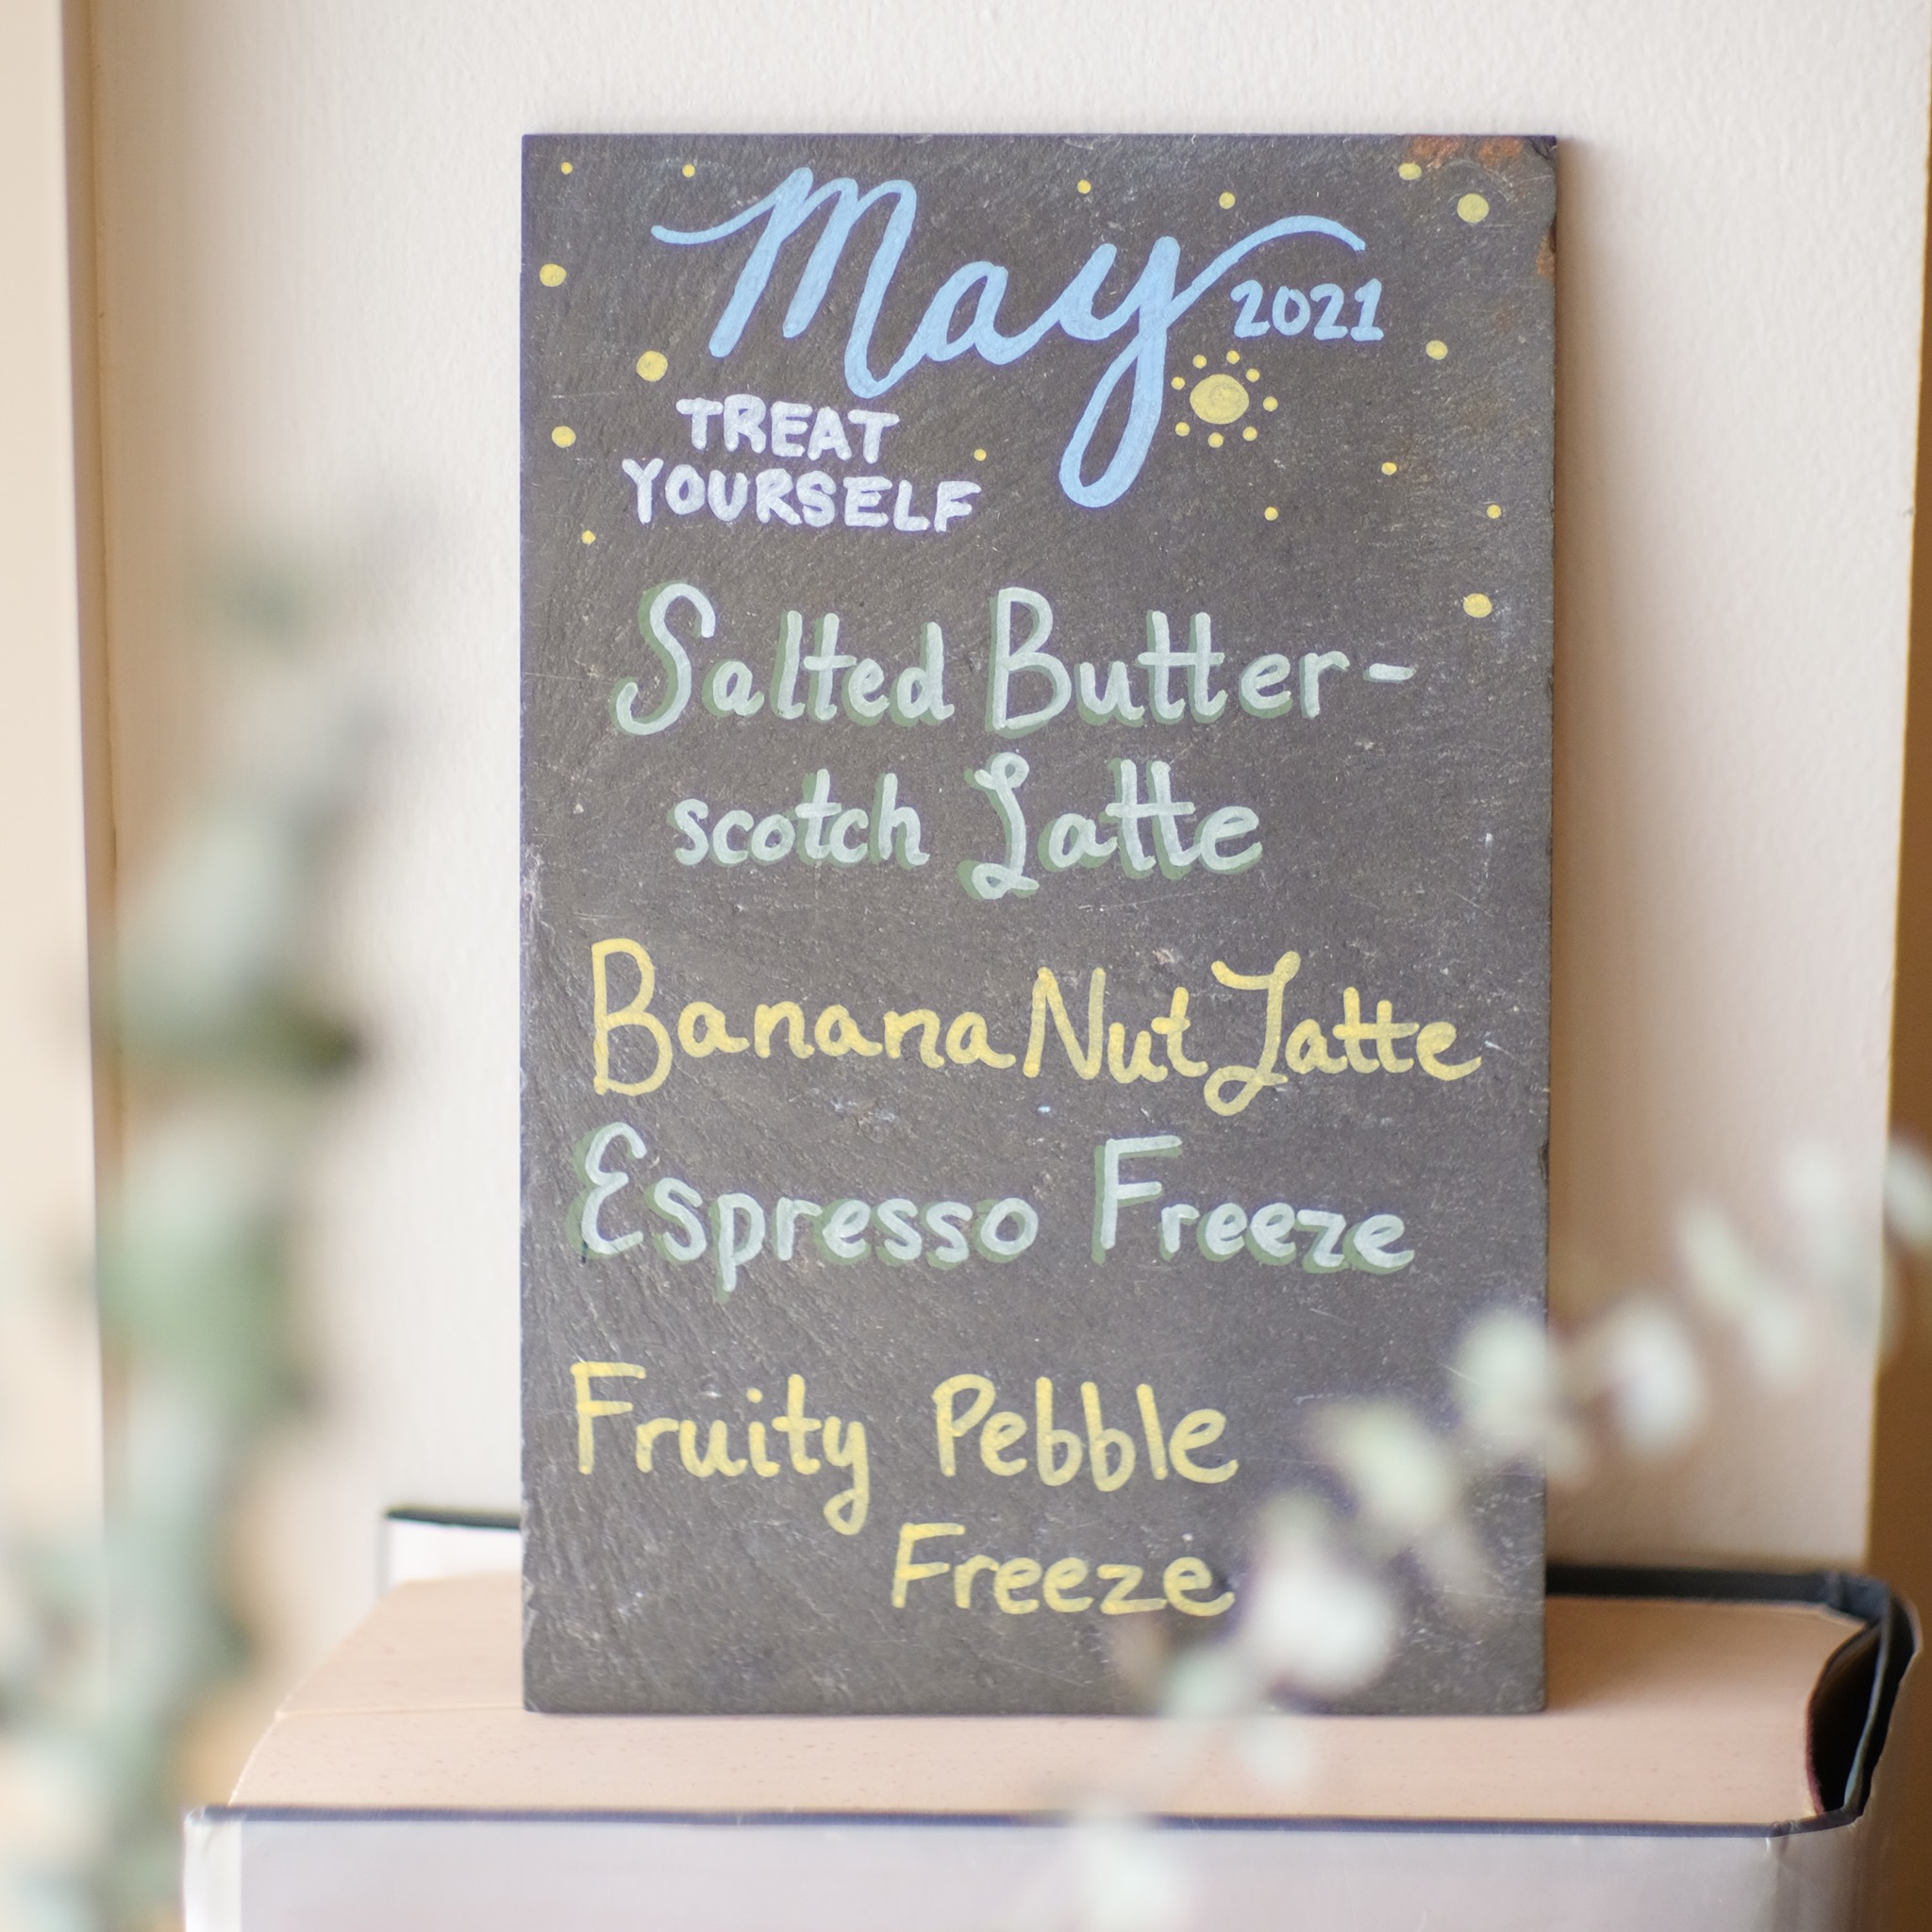 May 2021
TREAT
YOURSELF
Salted Butter-
scotch Latte
Banana Nut Latte
Espresso Freeze
Fruity Pebble
Freeze